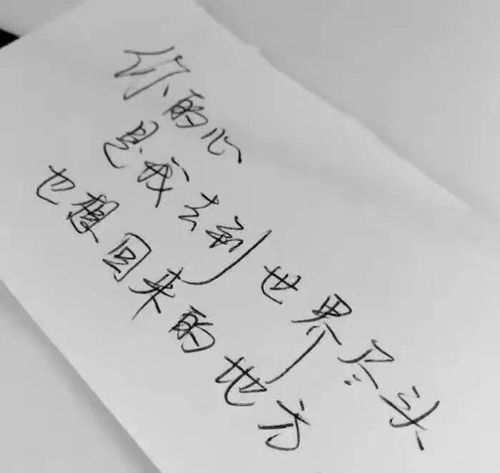 你的心
是我去到世界尽头
也想回来的地方